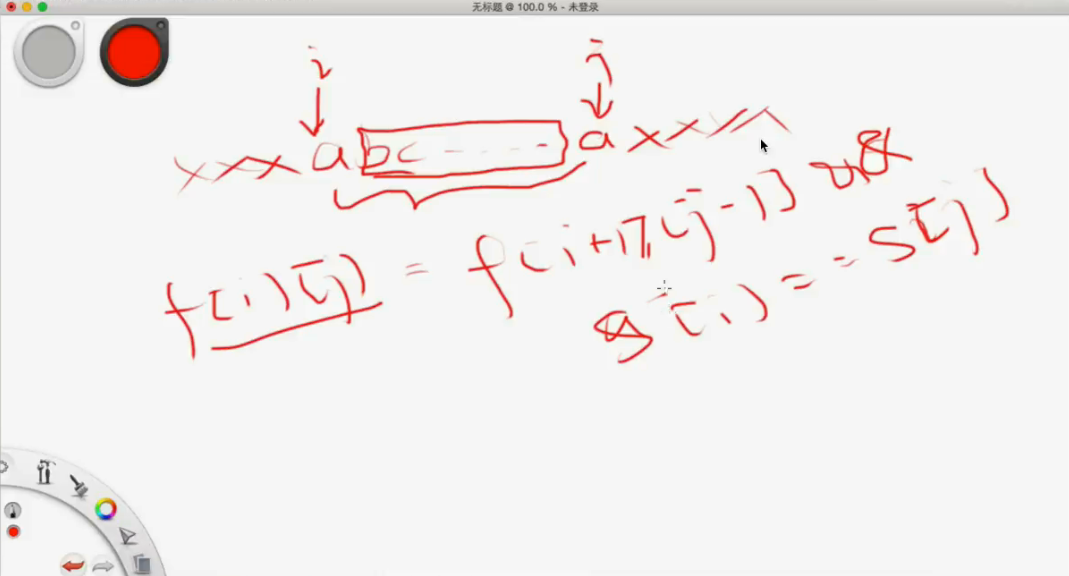 无标题 @ 100.0 % - 未登录
i j
xxx a bc ---- a xxxx
f[i][j] = f[i+1][j-1] &&
s[i] == s[j]